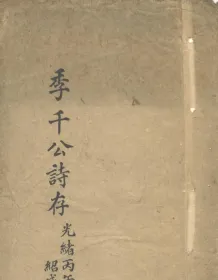 季千公詩存
光緒丙午
紹